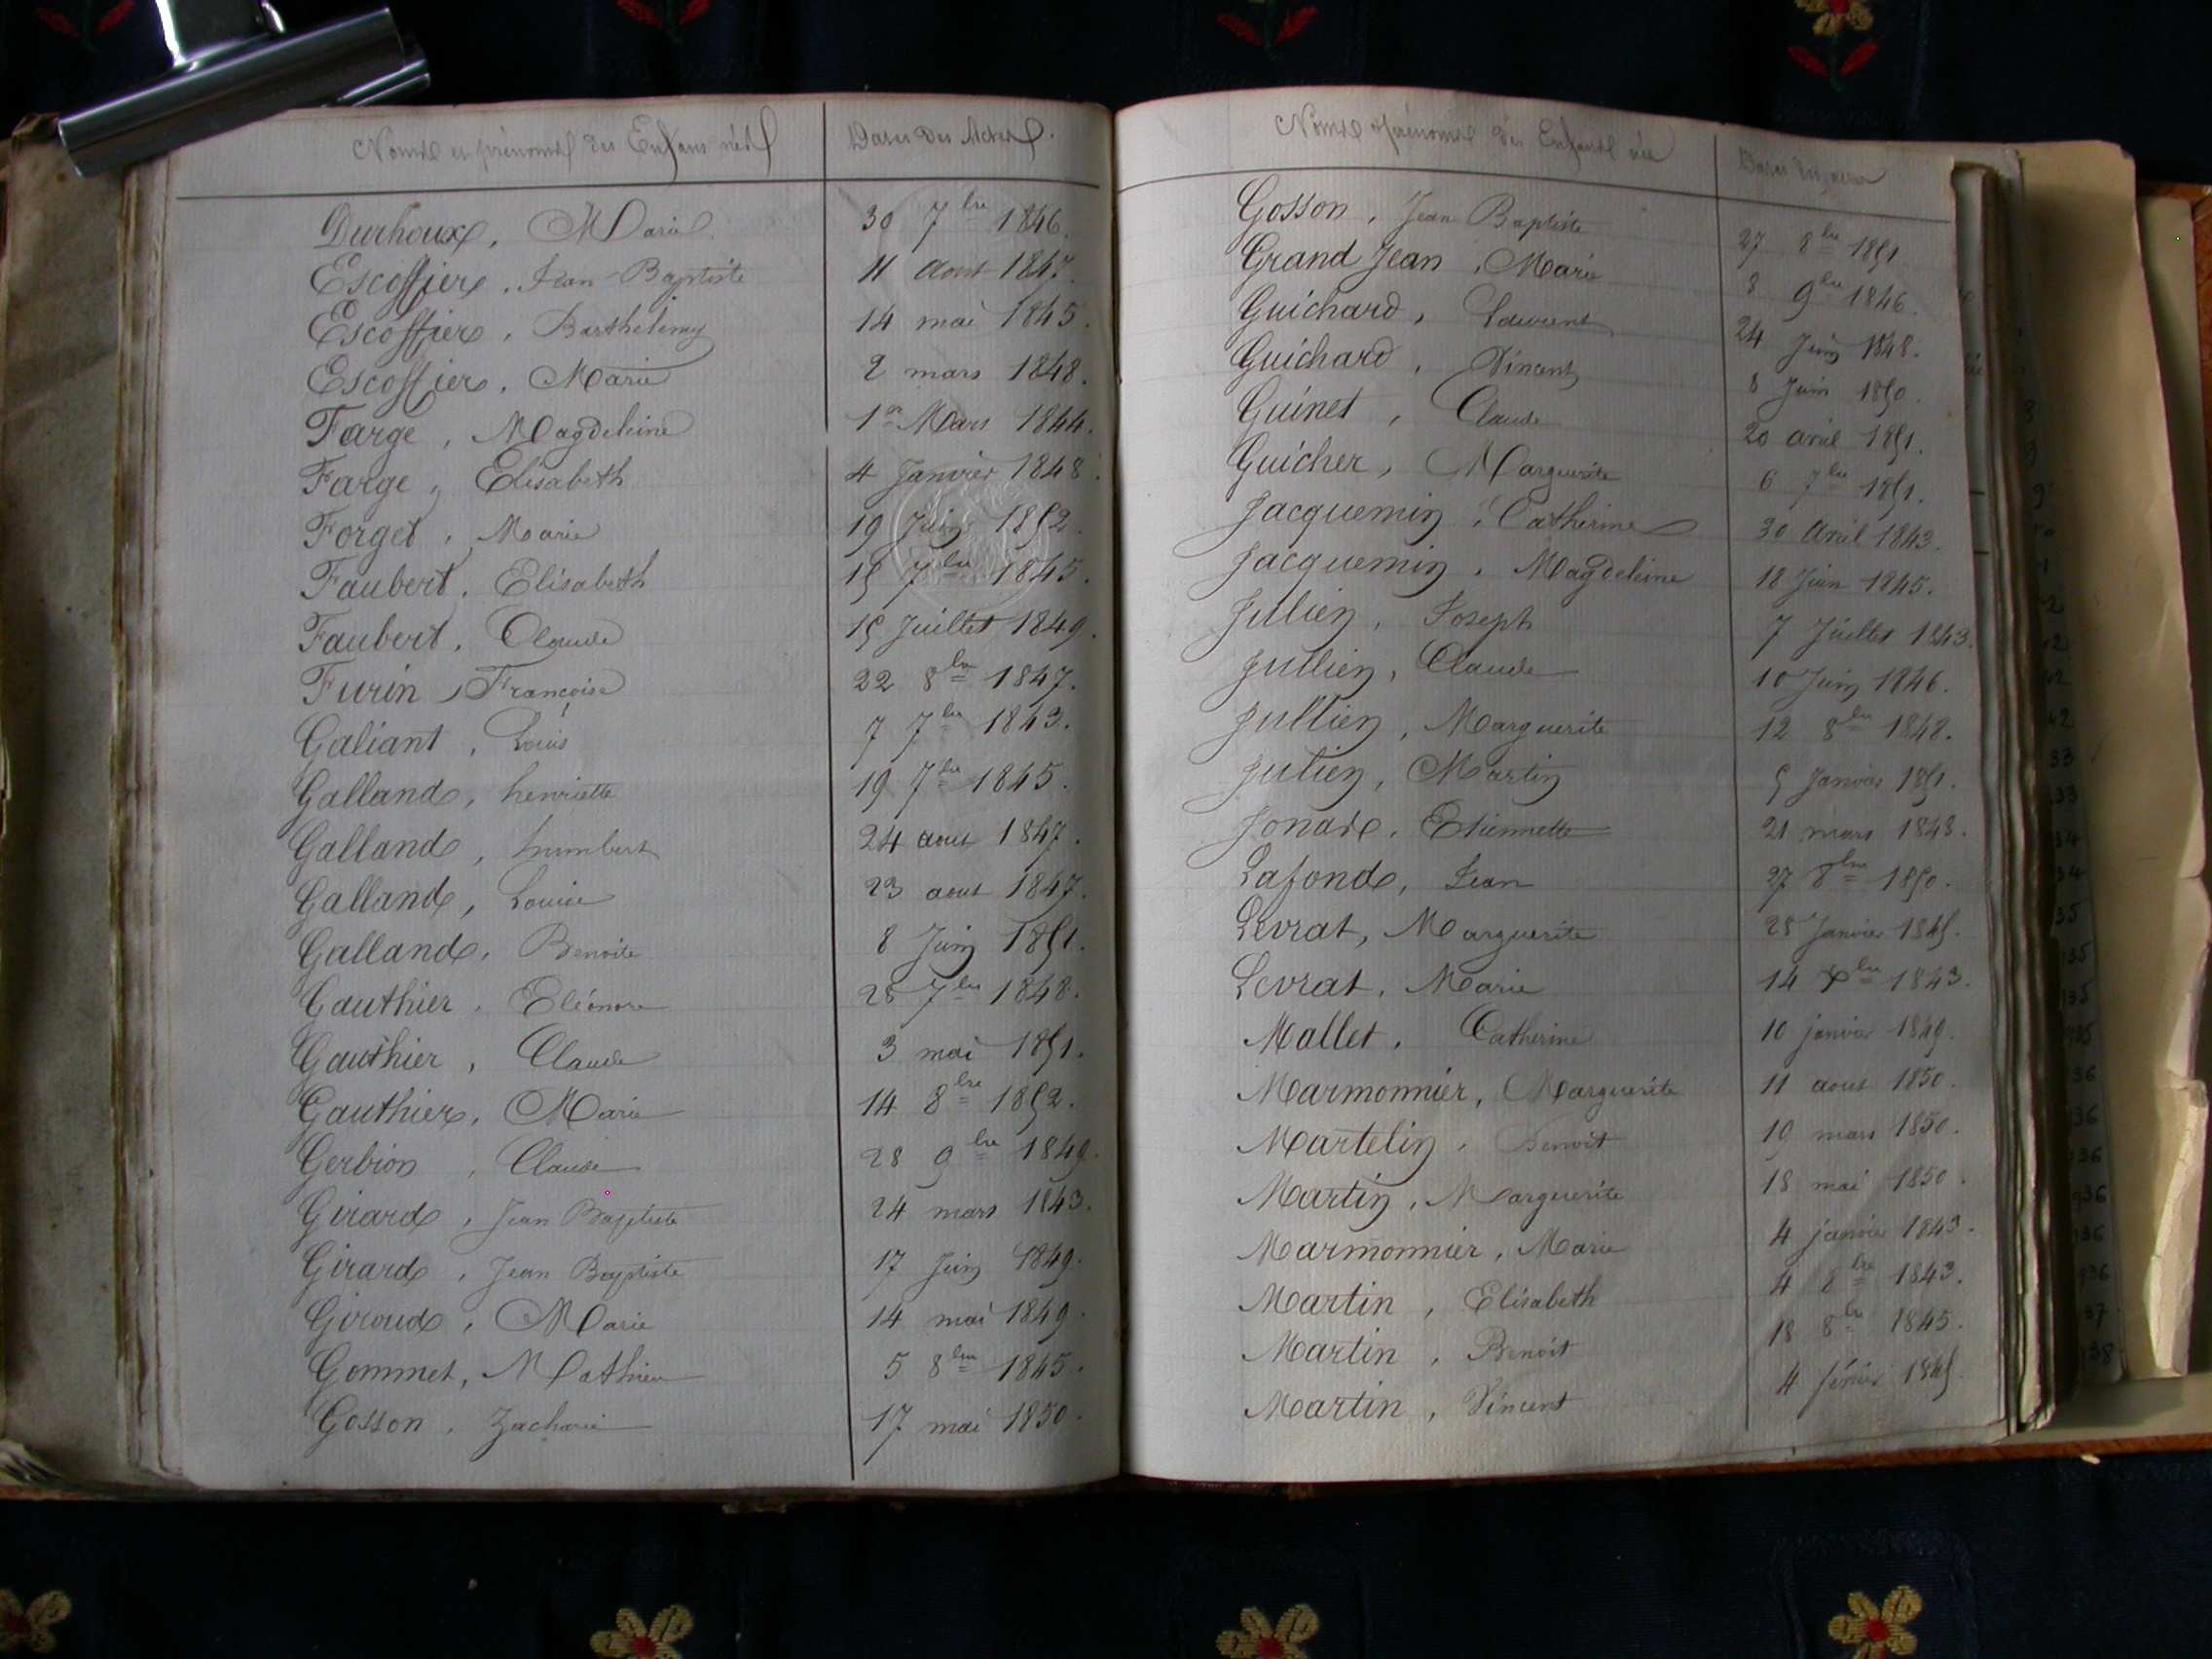 Noms et prénoms des Enfans nés Dates des Actes.
Durhoux, Marie 30 7bre 1846.
Escoffier, Jean-Baptiste 11 aout 1847.
Escoffier, Barthelemy 14 mai 1845.
Escoffier, Marie 2 mars 1848.
Farge, Magdeleine 1er Mars 1844.
Farge, Elisabeth 4 Janvier 1848.
Forget, Marie 19 Juin 1852.
Faubert, Elisabeth 15 7bre 1845.
Faubert, Claude 15 Juillet 1849.
Furin, Françoise 22 8bre 1847.
Galiant, Louis 7 7bre 1843.
Galland, henriette 19 7bre 1845.
Galland, humbert 24 aout 1847.
Galland, Louise 23 aout 1847.
Galland, Benoite 8 Juin 1851.
Gauthier, Eléonore 28 7bre 1848.
Gauthier, Claude 3 mai 1851.
Gauthier, Marie 14 8bre 1852.
Gerbion, Claude 28 9bre 1849.
Girard, Jean Baptiste 24 mars 1843.
Girard, Jean Baptiste 17 Juin 1849.
Giroud, Marie 14 mai 1849.
Gommet, Mathieu 5 8bre 1845.
Gosson, Zacharie 17 mai 1850.
Noms et prénoms des Enfants nés Dates des
Gosson, Jean Baptiste 27 8bre 1851.
Grand Jean, Marie 8 9bre 1846.
Guichard, Laurent 24 Juin 1848.
Guichard, Vincent 8 Juin 1850.
Guinet, Claude 20 avril 1851.
Guicher, Marguerite 6 7bre 1851.
Jacquemin, Catherine 30 Avril 1843.
Jacquemin, Magdeleine 18 Juin 1845.
Jullien, Joseph 7 Juillet 1843.
Jullien, Claude 10 Juin 1846.
Jullien, Marguerite 12 8bre 1848.
Julien, Martin 5 Janvier 1851.
Jonard, Etiennette 21 mars 1843.
Lafond, Jean 27 8bre 1850.
Levrat, Marguerite 28 Janvier 1845.
Levrat, Marie 14 Xbre 1843.
Mallet, Catherine 10 janvier 1849.
Marmonnier, Marguerite 11 aout 1850.
Martelin, Benoit 10 mars 1850.
Martin, Marguerite 18 mai 1850.
Marmonnier, Marie 4 janvier 1843.
Martin, Elisabeth 4 8bre 1843.
Martin, Benoit 18 8bre 1845.
Martin, Vincent 4 février 1845.